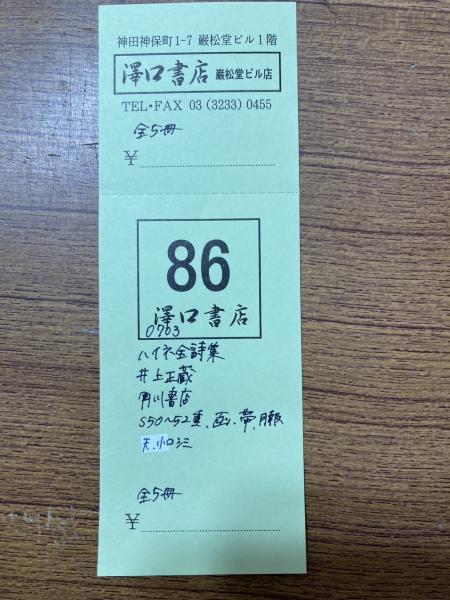 神田神保町1-7 巌松堂ビル1階
澤口書店 巌松堂ビル店
TEL・FAX 03 (3233) 0455
全5冊
￥
86
澤口書店
0703
ハイネ全詩集
井上正蔵
角川書店
S50〜52重、函、帯、月報
天、小口シミ
全5冊
￥